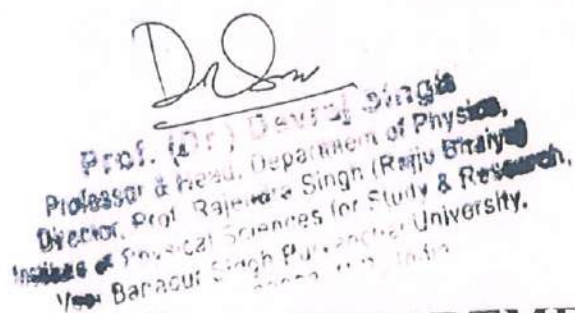 Prof. (Dr.) Devraj Singh
Professor & Head, Department of Physics,
Director, Prof. Rajendra Singh (Rajju Bhaiya)
Institute of Physical Sciences for Study & Research,
Veer Bahadur Singh Purvanchal University,
U.P., India